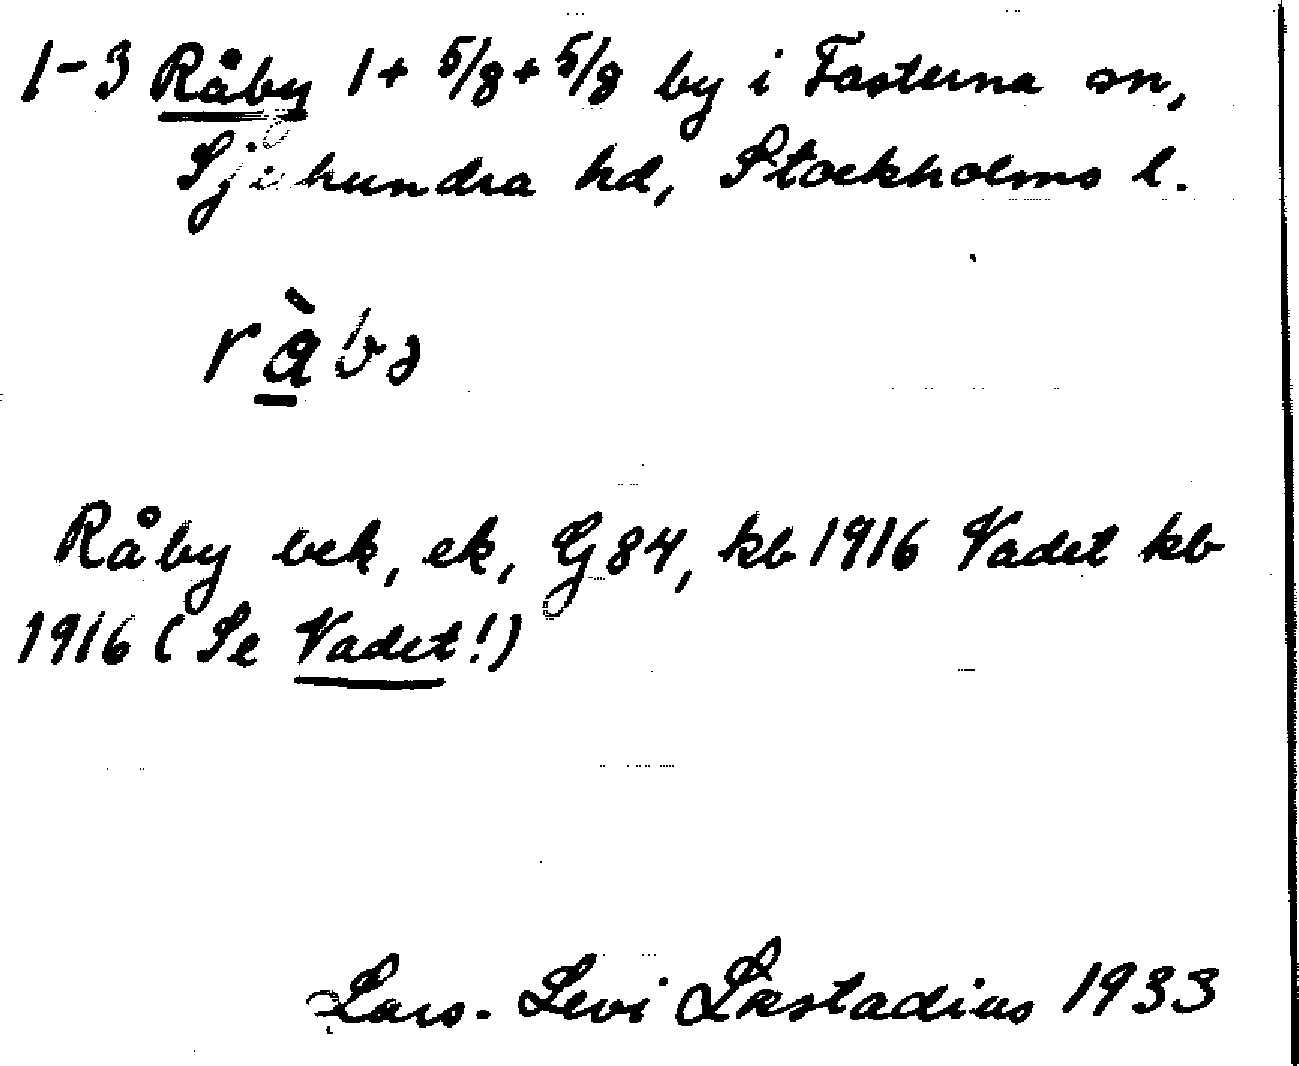 1-3 Råby 1 + 5/8 + 5/8 by i Fasterna sn,
Sjuhundra hd, Stockholms l.
rà̱bə
Råby bek, ek, G 84, kb 1916 Vadet kb
1916 (Se Vadet!)
Lars-Levi Læstadius 1933